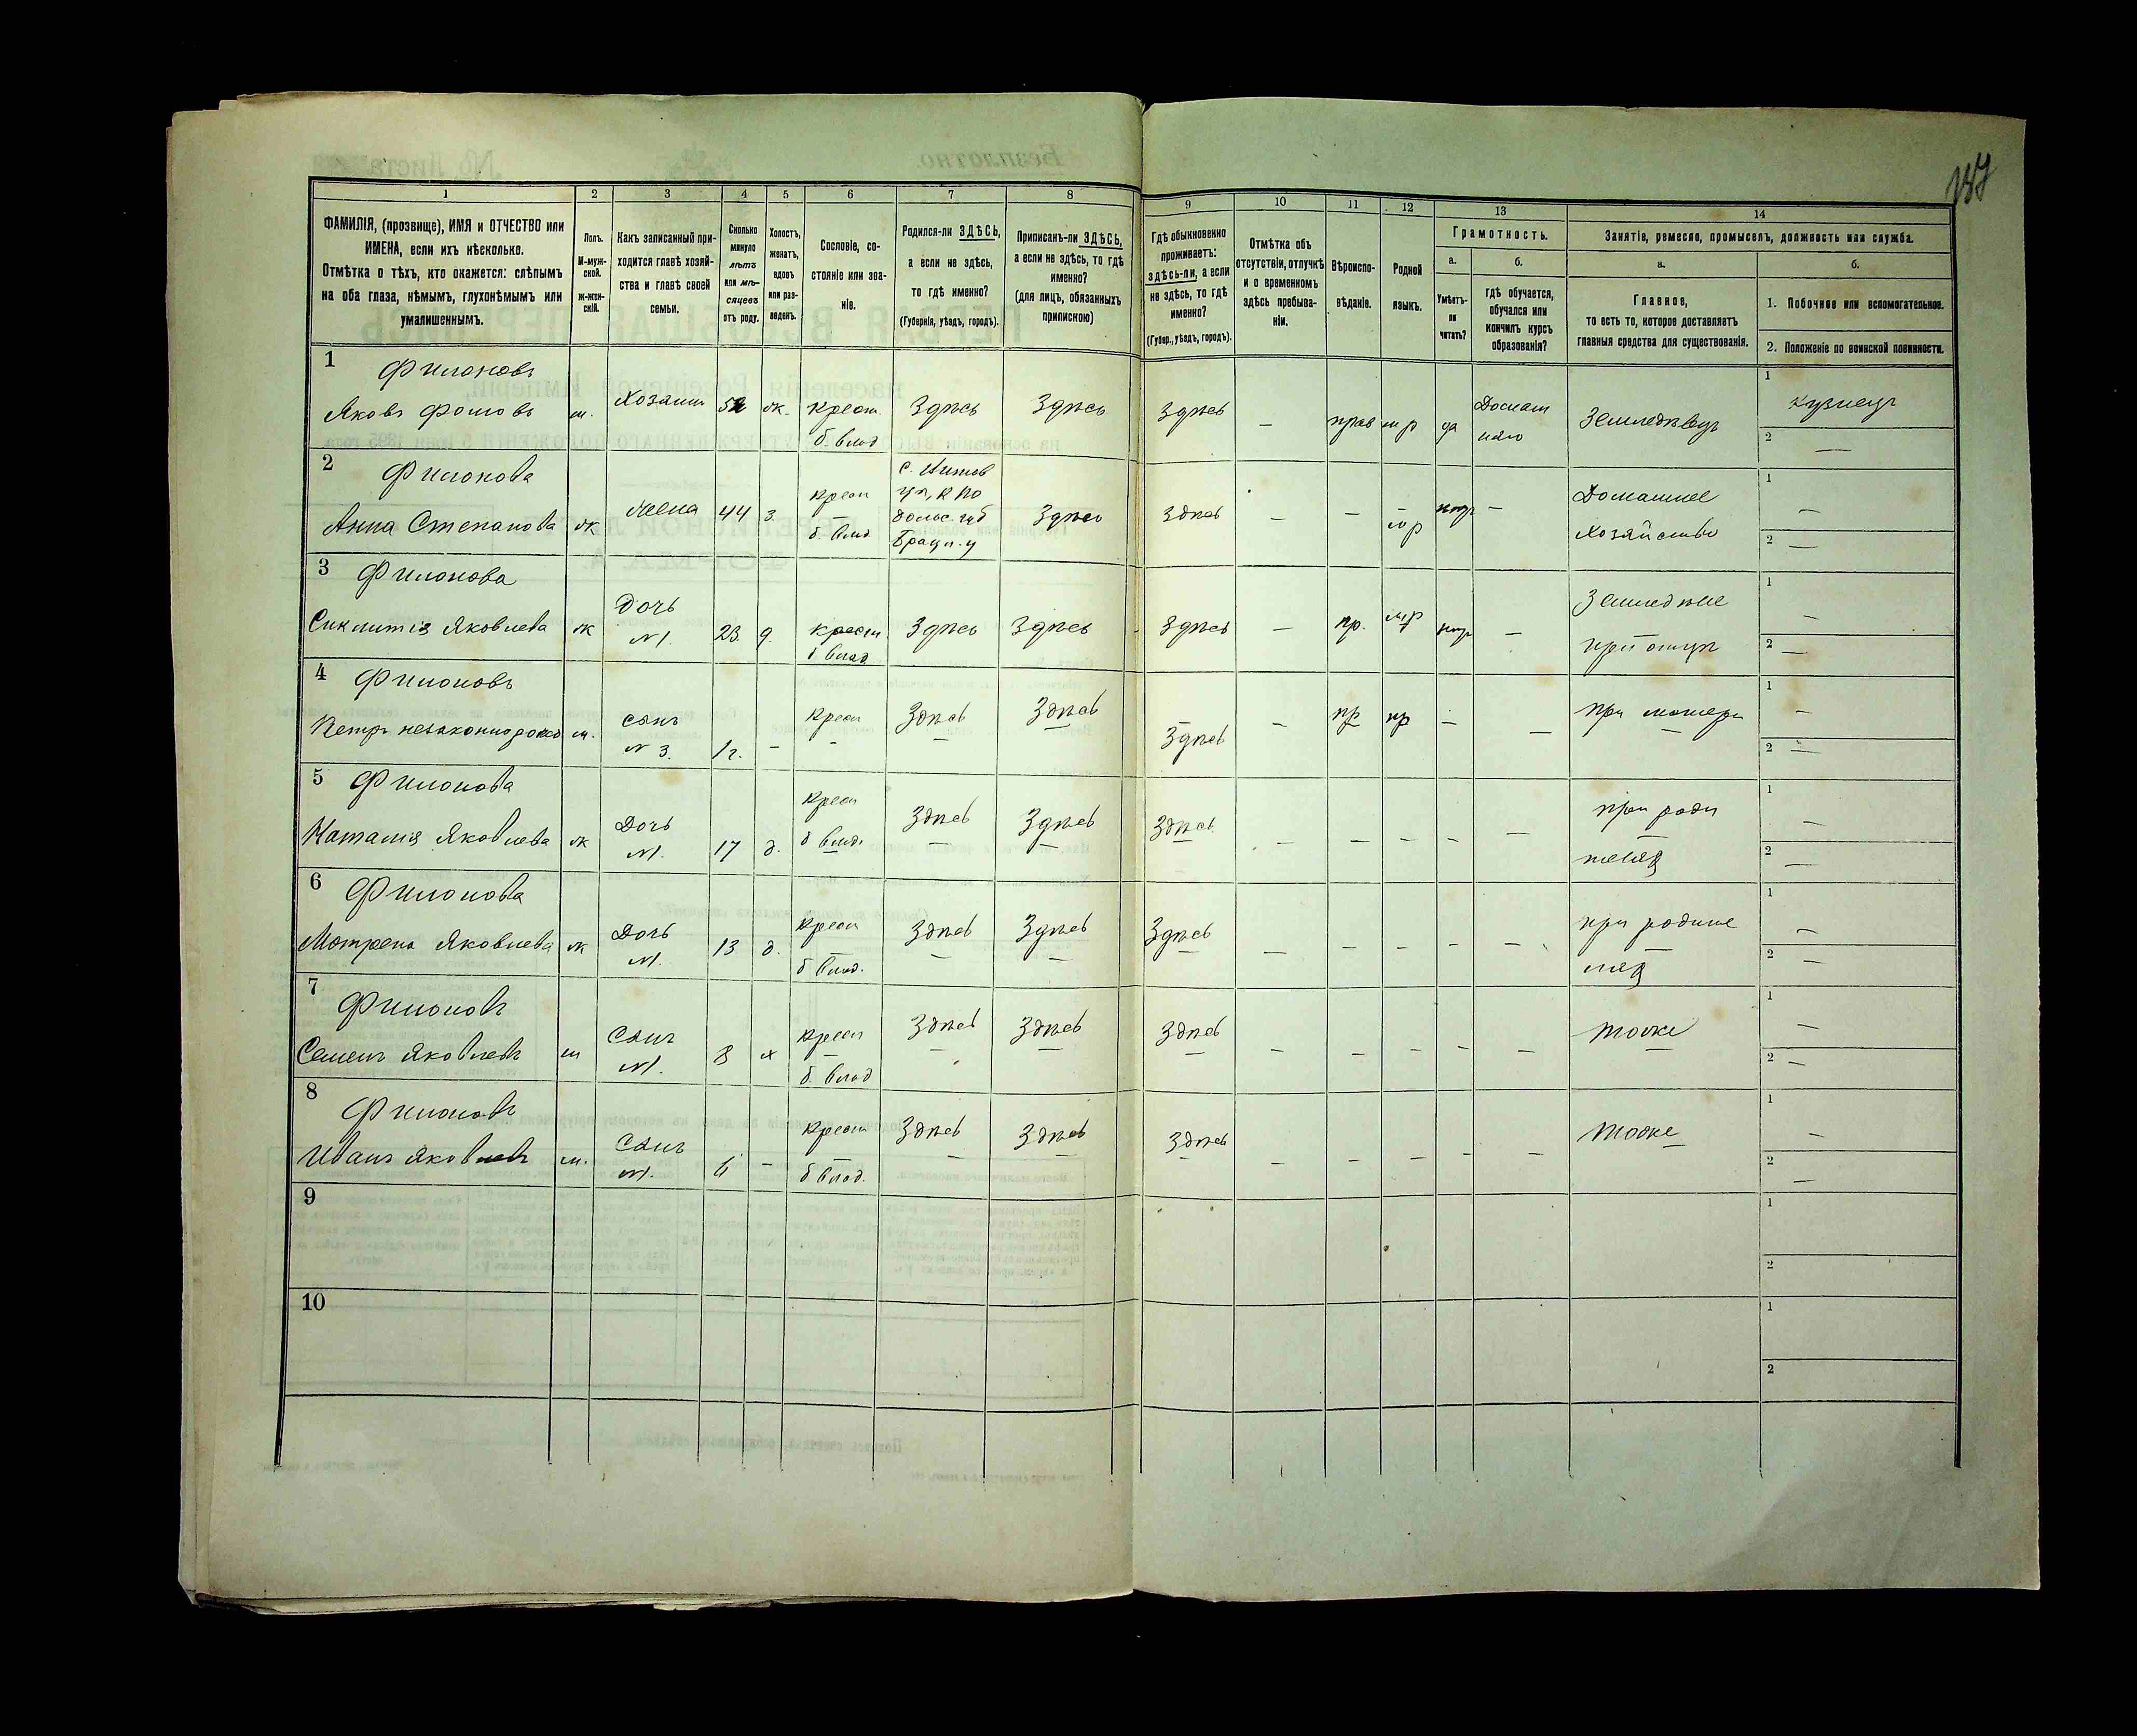 187
1 2 3 4 5 6 7 8 9 10 11 12 13 14
ФАМИЛІЯ, (прозвище), ИМЯ и ОТЧЕСТВО или
ИМЕНА, если ихъ нѣсколько.
Отмѣтка о тѣхъ, кто окажется: слѣпымъ
на оба глаза, нѣмымъ, глухонѣмымъ или
умалишеннымъ.
Полъ.
М-муж-
ской.
ж-жен-
скій.
Какъ записанный при-
ходится главѣ хозяй-
ства и главѣ своей
семьи.
Сколько
минуло
лѣтъ
или мѣ-
сяцевъ
отъ роду.
Холостъ,
женатъ,
вдовъ
или раз-
веденъ.
Сословіе, со-
стояніе или зва-
ніе.
Родился-ли ЗДѢСЬ,
а если не здѣсь,
то гдѣ именно?
(Губернія, уѣздъ, городъ).
Приписанъ-ли ЗДѢСЬ,
а если не здѣсь, то гдѣ
именно?
(для лицъ, обязанныхъ
припискою)
Гдѣ обыкновенно
проживаетъ:
здѣсь-ли, а если
не здѣсь, то гдѣ
именно?
(Губер., уѣздъ, городъ).
Отмѣтка объ
отсутствіи, отлучкѣ
и о временномъ
здѣсь пребыва-
ніи.
Вѣроиспо-
вѣданіе.
Родной
языкъ.
Грамотность.
а.
Умѣетъ-
ли
читать?
б.
гдѣ обучается,
обучался или
кончилъ курсъ
образованія?
Занятіе, ремесло, промыселъ, должность или служба.
а.
Главное,
то есть то, которое доставляетъ
главныя средства для существованія.
б.
1. Побочное или вспомогательное.
2. Положеніе по воинской повинности.
1 Филоновъ
Яковъ Фомовъ м. Хозяин 52 ж. Крест. Здѣсь Здѣсь Здѣсь — прав мр да Домаш Земледѣлецъ 1 Кузнецъ
б влад няго 2 —
2 Филонова
Анна Степанова ж Жена 44 з. Крест б. влад Здѣсь Здѣсь — — мр — Домашнее 1 —
дольс. губ Хозяйство 2 —
3 Филонова
Сиклитія Яковлева ж Дочь 23 д. крест. Здѣсь Здѣсь Здѣсь — пр. мр — Земледѣліе 1 —
N1. б влад при отцѣ 2 —
4 Филоновъ
Петръ незаконнорож м. сынъ 1г. — Крест Здѣсь Здѣсь Здѣсь — пр — — при матери 1 —
N 3. 2 —
5 Филонова
Наталія Яковлева ж Дочь 17 д. Крест Здѣсь Здѣсь Здѣсь — — — — — при роди 1 —
N1. б влад. теляхъ 2 —
6 Филонова
Мотрена Яковлева ж Дочь 13 д. Крест Здѣсь Здѣсь Здѣсь — — — — — при родите 1 —
N1. б влад. ляхъ 2 —
7 Филоновъ
Семенъ Яковлевъ м Сынъ 8 х Крест Здѣсь Здѣсь Здѣсь — — — — — тоже 1 —
N1. б. влад 2 —
8 Филоновъ
Иванъ Яковлевъ м. Сынъ 6 — Крест Здѣсь Здѣсь Здѣсь — — — — — тоже 1 —
N1. б влад. 2 —
9 1
2
10 1
2